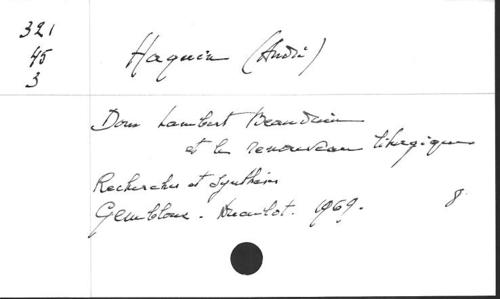 321
45
3
Haquin (André)
Dom Lambert Beauduin
et le renouveau liturgique
Recherches et Synthèses
Gembloux. Duculot. 1969. 8